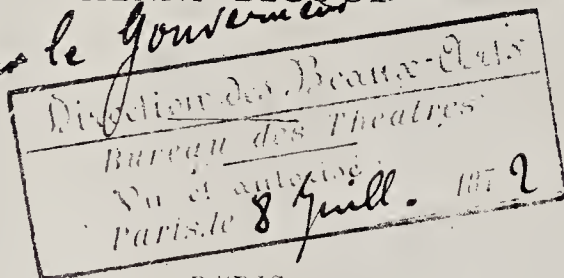 le Gouverneur
Direction des Beaux-Arts
Bureau des Théatres
Vu et autorisé.
Paris, le 8 Juill. 1872